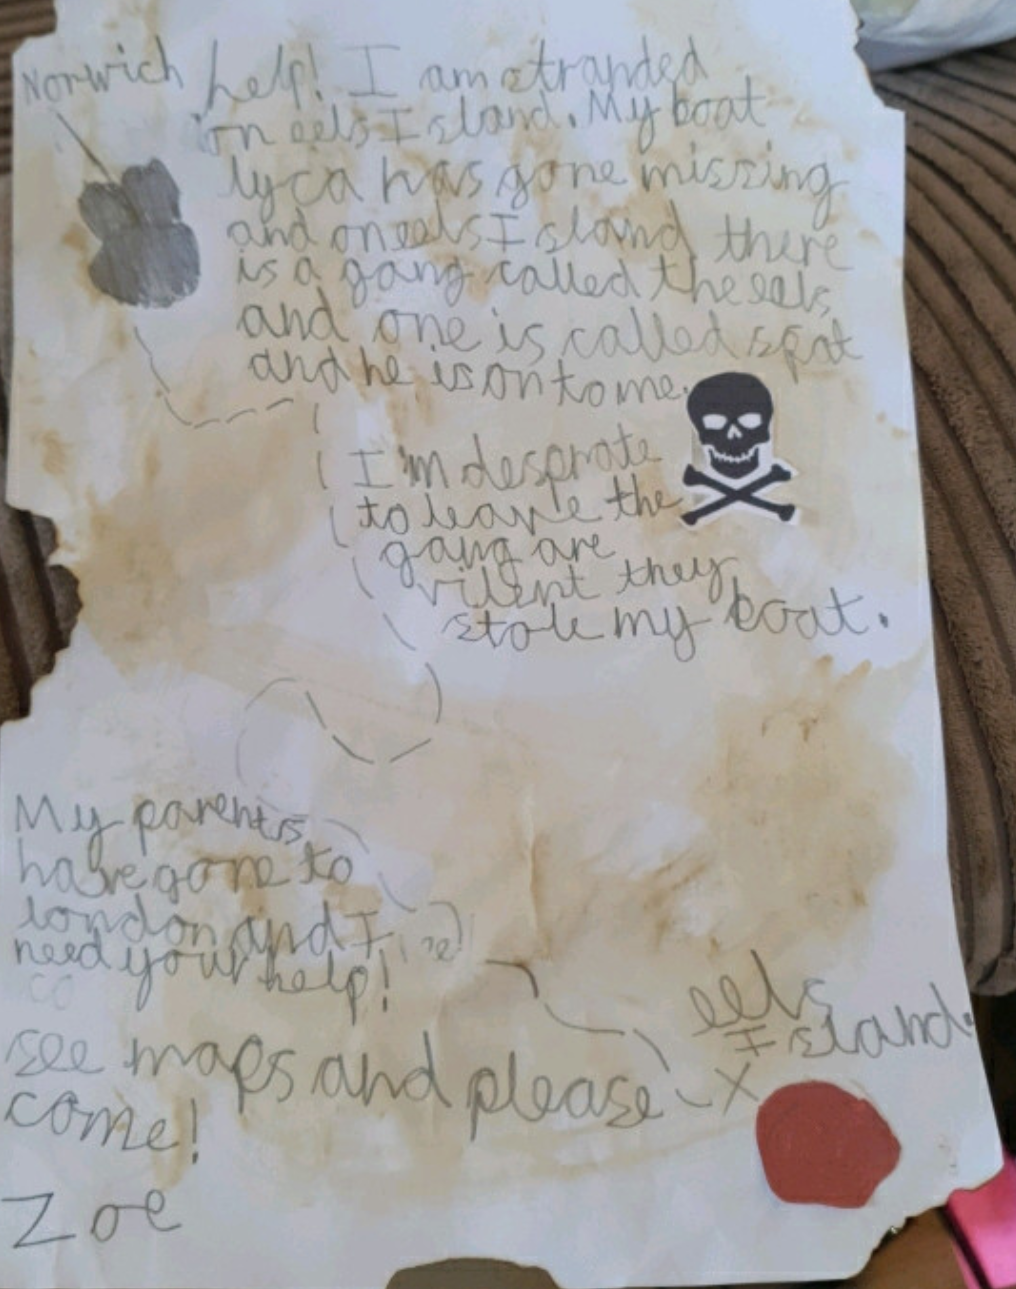 Norwich
help! I am stranded
on eels Island. My boat
lyca has gone missing
and on eels Island there
is a gang called the eels
and one is called spat
and he is on to me.
I'm desprate
to leave the
gang are
vilent they
stole my boat.
My parents
have gone to
london and I
need your help!
see maps and please
come!
eels
Island.
X
Zoe